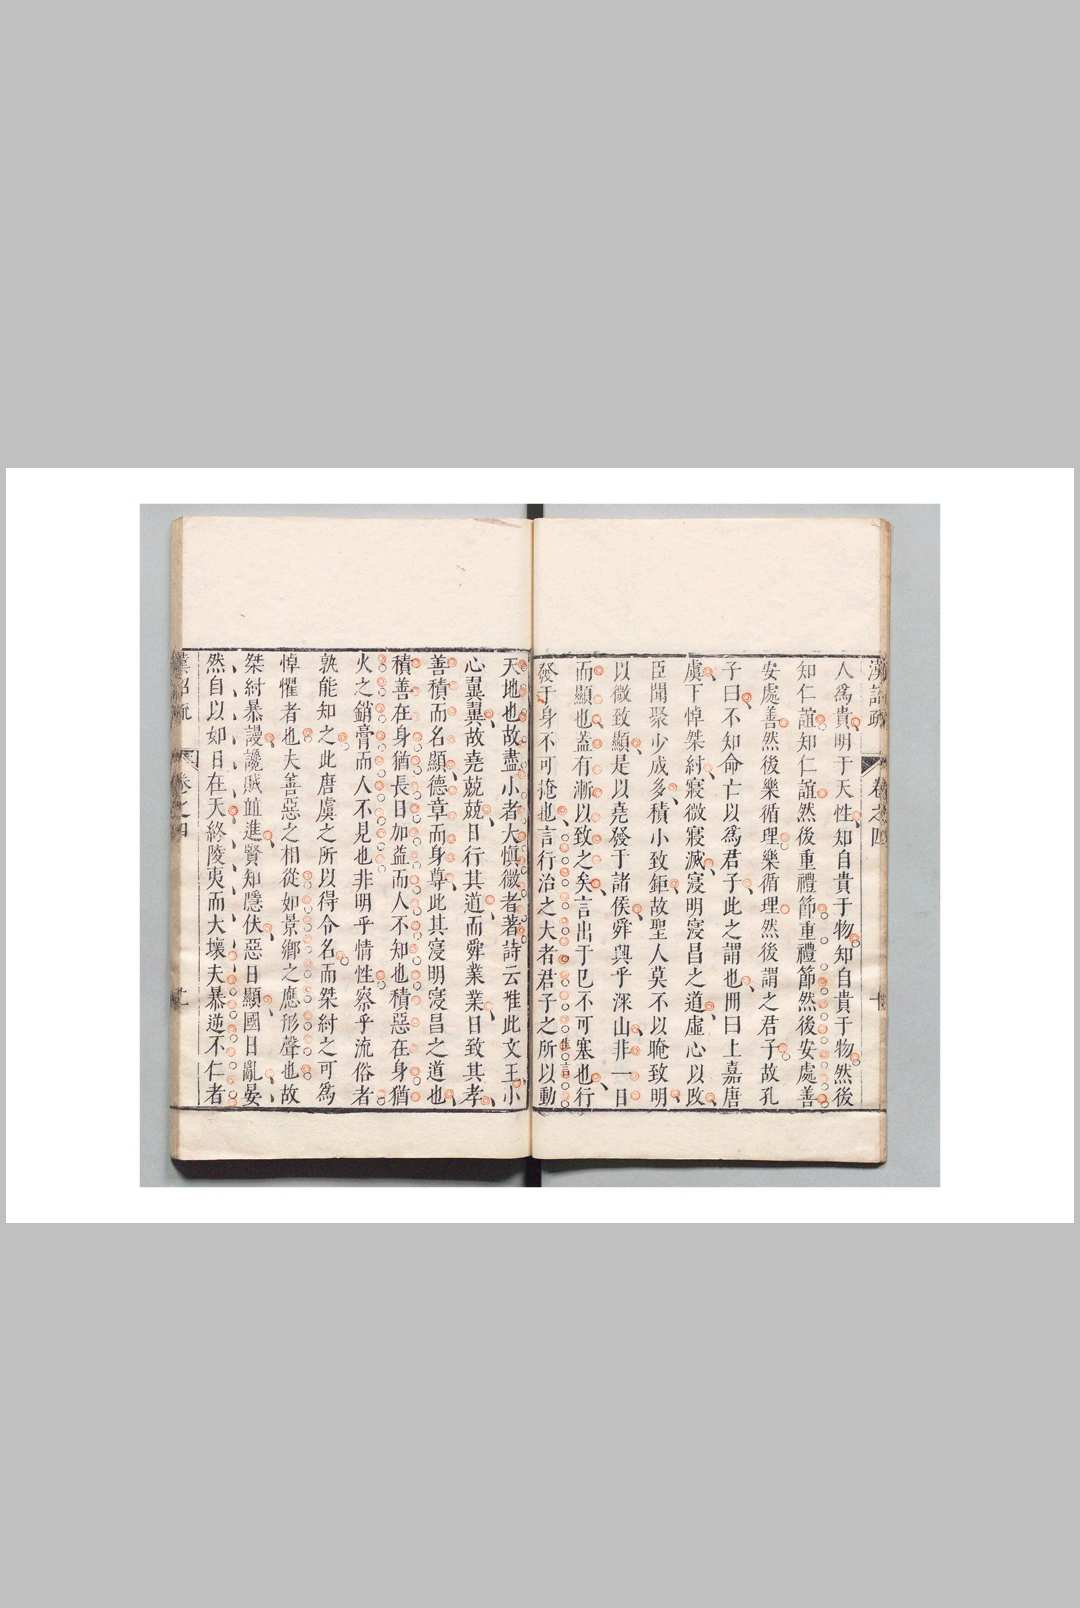 漢詔疏 卷之四
人爲貴明于天性知自貴于物知自貴于物然後
知仁誼知仁誼然後重禮節重禮節然後安處善
安處善然後樂循理樂循理然後謂之君子故孔
子曰不知命亡以爲君子此之謂也冊曰上嘉唐
虞下悼桀紂寖微寖滅寖明寖昌之道虛心以改
臣聞聚少成多積小致鉅故聖人莫不以晻致明
以微致顯是以堯發于諸侯舜興乎深山非一日
而顯也葢有漸以致之矣言出于巳不可塞也行
發于身不可掩也言行治之大者君子之所以動
天地也故盡小者大慎微者著詩云惟此文王小
心翼翼故堯兢兢日行其道而舜業業日致其孝
善積而名顯德章而身尊此其寖明寖昌之道也
積善在身猶長日加益而人不知也積惡在身猶
火之銷膏而人不見也非明乎情性察乎流俗者
孰能知之此唐虞之所以得令名而桀紂之可爲
悼懼者也夫善惡之相從如景鄉之應形聲也故
桀紂暴謾讒賊並進賢知隱伏惡日顯國日亂晏
然自以如日在天終陵夷而大壞夫暴逆不仁者
漢詔疏 卷之四